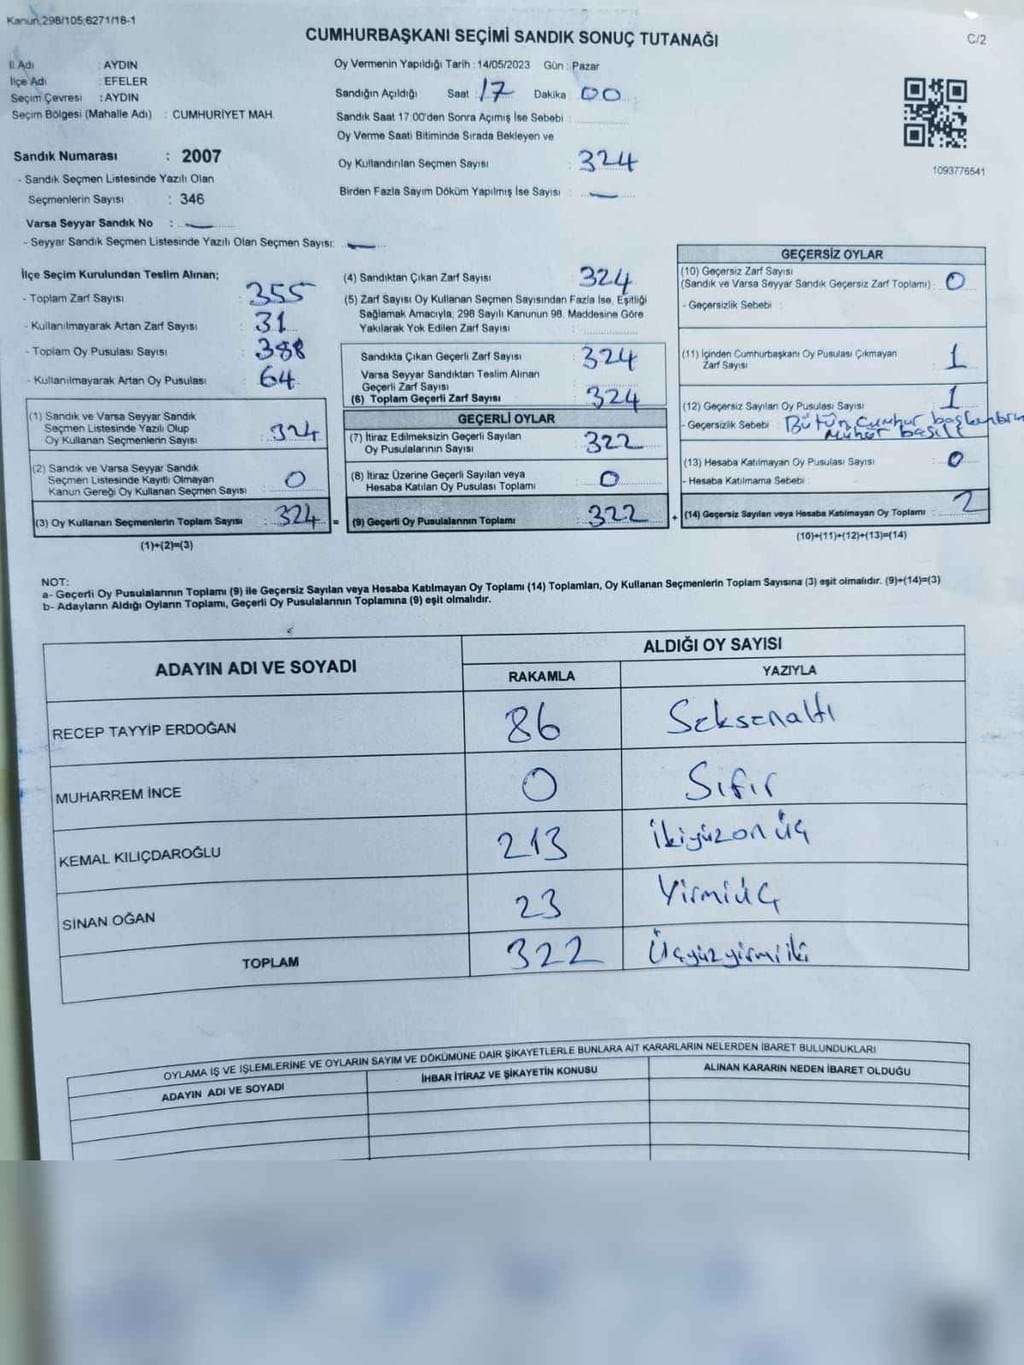 Kanun,298/105;6271/18-1
CUMHURBAŞKANI SEÇİMİ SANDIK SONUÇ TUTANAĞI
C/2
İl Adı : AYDIN
İlçe Adı : EFELER
Seçim Çevresi : AYDIN
Seçim Bölgesi (Mahalle Adı) : CUMHURİYET MAH.
Sandık Numarası : 2007
- Sandık Seçmen Listesinde Yazılı Olan
Seçmenlerin Sayısı : 346
Varsa Seyyar Sandık No : —
- Seyyar Sandık Seçmen Listesinde Yazılı Olan Seçmen Sayısı: —
Oy Vermenin Yapıldığı Tarih : 14/05/2023 Gün : Pazar
Sandığın Açıldığı Saat 17 Dakika 00
Sandık Saat 17:00'den Sonra Açımış İse Sebebi :
Oy Verme Saati Bitiminde Sırada Bekleyen ve
Oy Kullandırılan Seçmen Sayısı : 324
Birden Fazla Sayım Döküm Yapılmış İse Sayısı : —
1093776541
İlçe Seçim Kurulundan Teslim Alınan;
- Toplam Zarf Sayısı : 355
- Kullanılmayarak Artan Zarf Sayısı : 31
- Toplam Oy Pusulası Sayısı : 388
- Kullanılmayarak Artan Oy Pusulası : 64
(1) Sandık ve Varsa Seyyar Sandık
Seçmen Listesinde Yazılı Olup
Oy Kullanan Seçmenlerin Sayısı : 324
(2) Sandık ve Varsa Seyyar Sandık
Seçmen Listesinde Kayıtlı Olmayan
Kanun Gereği Oy Kullanan Seçmen Sayısı : 0
(3) Oy Kullanan Seçmenlerin Toplam Sayısı : 324 =
(1)+(2)=(3)
(4) Sandıktan Çıkan Zarf Sayısı : 324
(5) Zarf Sayısı Oy Kullanan Seçmen Sayısından Fazla İse, Eşitliği
Sağlamak Amacıyla, 298 Sayılı Kanunun 98. Maddesine Göre
Yakılarak Yok Edilen Zarf Sayısı :
Sandıkta Çıkan Geçerli Zarf Sayısı : 324
Varsa Seyyar Sandıktan Teslim Alınan
Geçerli Zarf Sayısı :
(6) Toplam Geçerli Zarf Sayısı : 324
GEÇERLİ OYLAR
(7) İtiraz Edilmeksizin Geçerli Sayılan
Oy Pusulalarının Sayısı : 322
(8) İtiraz Üzerine Geçerli Sayılan veya
Hesaba Katılan Oy Pusulası Toplamı : 0
(9) Geçerli Oy Pusulalarının Toplamı : 322 +
GEÇERSİZ OYLAR
(10) Geçersiz Zarf Sayısı
(Sandık ve Varsa Seyyar Sandık Geçersiz Zarf Toplamı) : 0
- Geçersizlik Sebebi :
(11) İçinden Cumhurbaşkanı Oy Pusulası Çıkmayan
Zarf Sayısı : 1
(12) Geçersiz Sayılan Oy Pusulası Sayısı : 1
- Geçersizlik Sebebi : Bütün Cumhur
Mühür
(13) Hesaba Katılmayan Oy Pusulası Sayısı : 0
- Hesaba Katılmama Sebebi :
(14) Geçersiz Sayılan veya Hesaba Katılmayan Oy Toplamı : 2
(10)+(11)+(12)+(13)=(14)
NOT:
a- Geçerli Oy Pusulalarının Toplamı (9) ile Geçersiz Sayılan veya Hesaba Katılmayan Oy Toplamı (14) Toplamları, Oy Kullanan Seçmenlerin Toplam Sayısına (3) eşit olmalıdır. (9)+(14)=(3)
b- Adayların Aldığı Oyların Toplamı, Geçerli Oy Pusulalarının Toplamına (9) eşit olmalıdır.
ADAYIN ADI VE SOYADI
ALDIĞI OY SAYISI
RAKAMLA YAZIYLA
RECEP TAYYİP ERDOĞAN 86 Seksenaltı
MUHARREM İNCE 0 Sıfır
KEMAL KILIÇDAROĞLU 213 İkiyüzon üç
SİNAN OĞAN 23 Yirmiüç
TOPLAM 322 Üçyüzyirmi iki
OYLAMA İŞ VE İŞLEMLERİNE VE OYLARIN SAYIM VE DÖKÜMÜNE DAİR ŞİKAYETLERLE BUNLARA AİT KARARLARIN NELERDEN İBARET BULUNDUKLARI
ADAYIN ADI VE SOYADI İHBAR İTİRAZ VE ŞİKAYETİN KONUSU ALINAN KARARIN NEDEN İBARET OLDUĞU